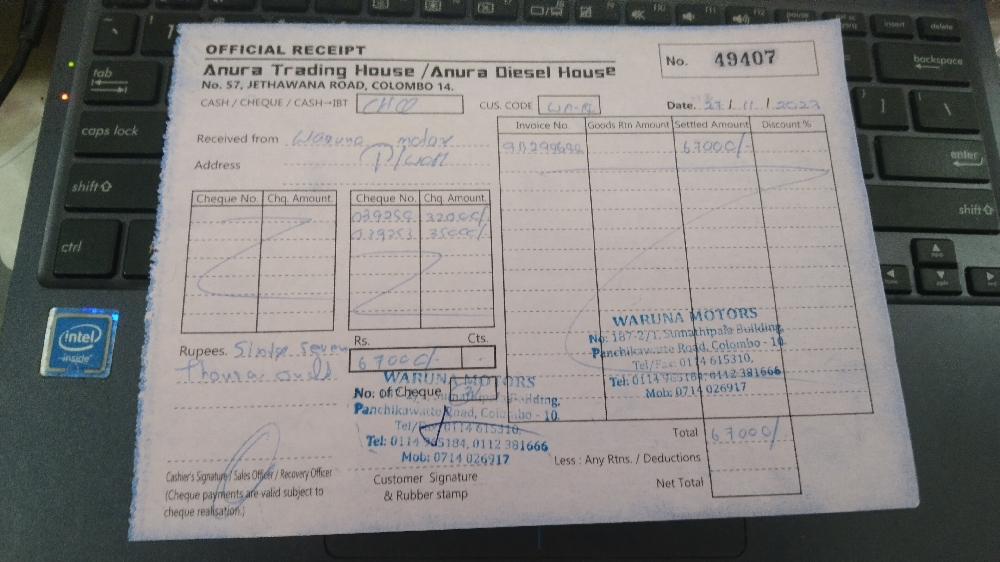 OFFICIAL RECEIPT
No. 49407
Anura Trading House / Anura Diesel House
No. 57, JETHAWANA ROAD, COLOMBO 14.
CASH / CHEQUE / CASH→IBT CHQ CUS. CODE Date. 27 / 11 / 2023
Received from Waruna motor
Address
Invoice No. Goods Rtn Amount Settled Amount Discount %
67000/-
Cheque No. Chq. Amount. Cheque No. Chq. Amount.
039252 32000/-
039253 35000/-
Rupees. Sixty seven
Thousand
Rs. Cts.
67000/-
No. of Cheque
WARUNA MOTORS
No: 187-2/1, Sumathipala Building,
Panchikawatte Road, Colombo - 10.
Tel/Fax: 0114 615310,
Tel: 0114 965184, 0112 381666
Mob: 0714 026917
WARUNA MOTORS
No: 187-2/1, Sumathipala Building,
Panchikawatte Road, Colombo - 10.
Tel/Fax: 0114 615310,
Tel: 0114 965184, 0112 381666
Mob: 0714 026917
Total 67000/-
Less : Any Rtns. / Deductions
Net Total
Cashier's Signature / Sales Officer / Recovery Officer
(Cheque payments are valid subject to
cheque realisation.)
Customer Signature
& Rubber stamp
intel
inside
tab
caps lock
shift
ctrl
insert
delete
backspace
enter
shift